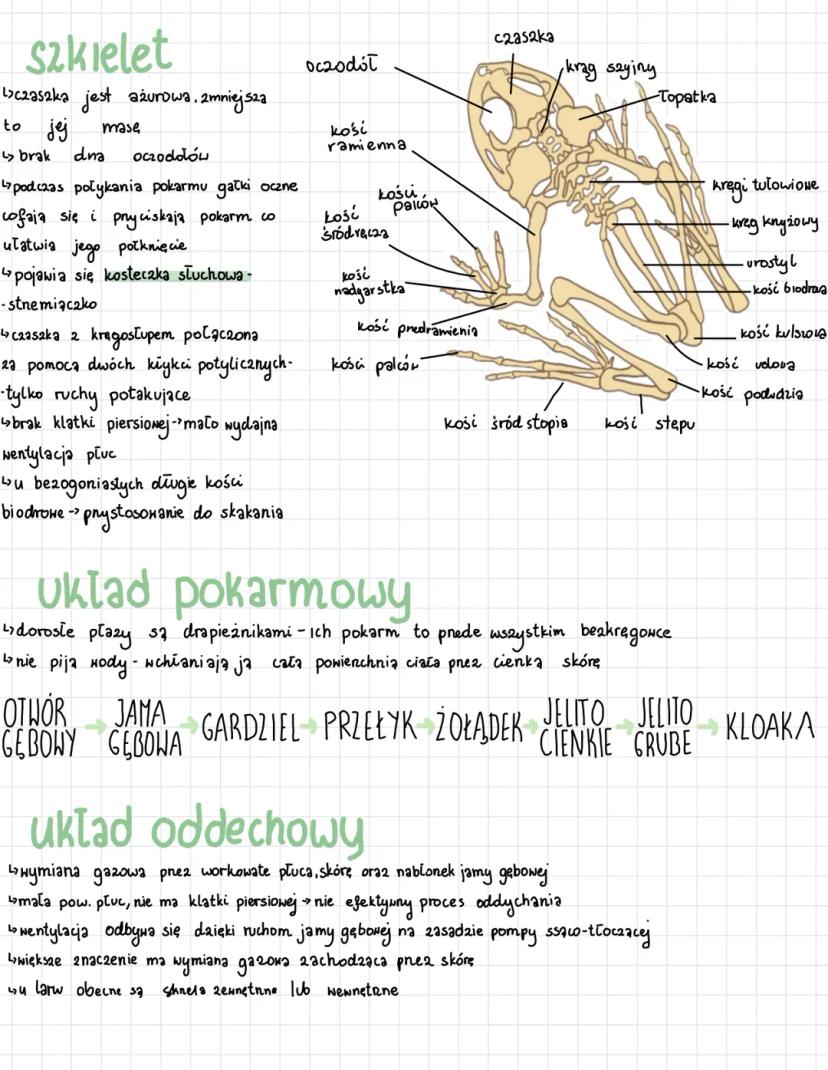 szkielet
↳czaszka jest ażurowa, zmniejsza
to jej masę
↳ brak dna oczodołów
↳podczas połykania pokarmu gałki oczne
cofają się i przyciskają pokarm co
ułatwia jego połknięcie
↳pojawia się kosteczka słuchowa-
-strzemiączko
↳czaszka z kręgosłupem połączona
za pomocą dwóch kłykci potylicznych-
-tylko ruchy potakujące
↳brak klatki piersiowej→mało wydajna
wentylacja płuc
↳u bezogoniastych długie kości
biodrowe→przystosowanie do skakania
czaszka
oczodół
kręg szyjny
łopatka
kość
ramienna
kości
palców
kość
śródręcza
kość
nadgarstka
kość predramienia
kości palców
kręgi tułowiowe
kręg krzyżowy
urostyl
kość biodrowa
kość kulszowa
kość udowa
kość podudzia
kość śród stopia
kość stępu
układ pokarmowy
↳dorosłe płazy są drapieżnikami-ich pokarm to przede wszystkim bezkręgowce
↳nie piją wody- wchłaniają ją całą powierzchnią ciała przez cienką skórę
OTWÓR GĘBOWY → JAMA GĘBOWA → GARDZIEL → PRZEŁYK → ŻOŁĄDEK → JELITO CIENKIE → JELITO GRUBE → KLOAKA
układ oddechowy
↳wymiana gazowa przez workowate płuca, skórę oraz nabłonek jamy gębowej
↳mała pow. płuc, nie ma klatki piersiowej→nie efektywny proces oddychania
↳wentylacja odbywa się dzięki ruchom jamy gębowej na zasadzie pompy ssąco-tłoczącej
↳większe znaczenie ma wymiana gazowa zachodząca przez skórę
↳u larw obecne są skrzela zewnętrzne lub wewnętrzne